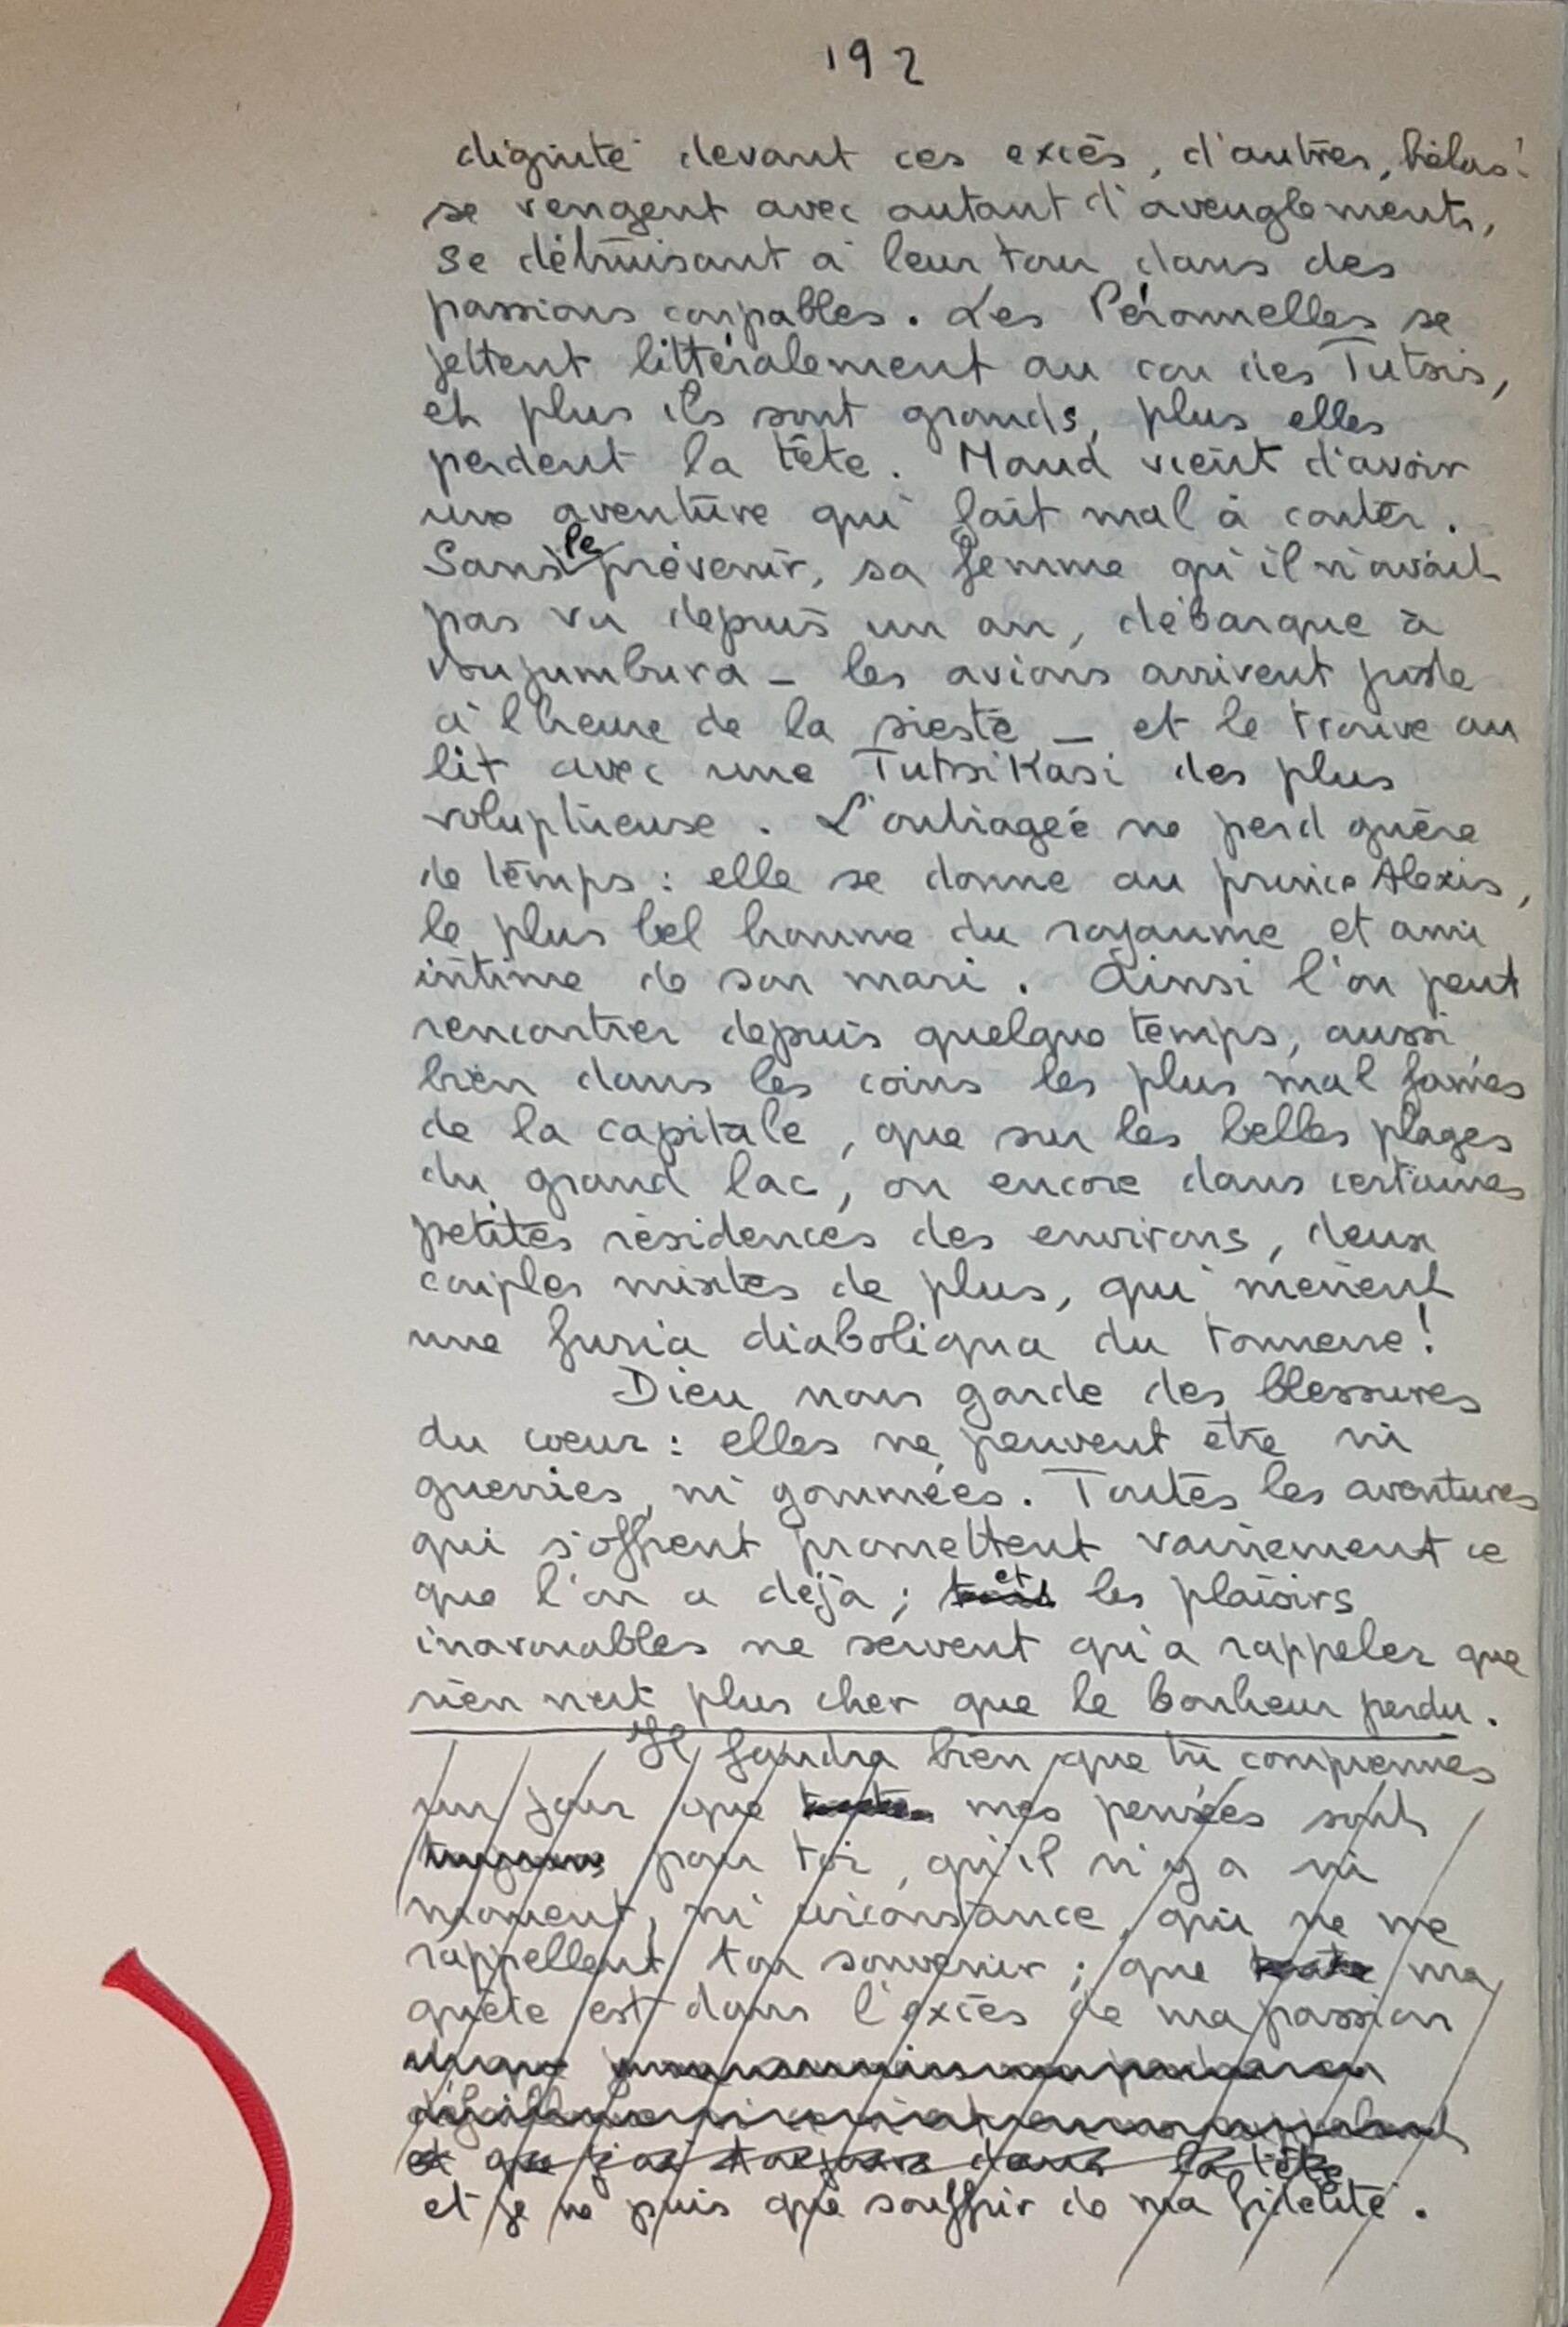 192
dignité devant ces excès, d'autres, hélas!
se vengent avec autant d'aveuglements,
se détruisant à leur tour dans des
passions coupables. Les Péronnelles se
jettent littéralement au cou des Tutsis,
et plus ils sont grands, plus elles
perdent la tête. Maud vient d'avoir
une aventure qui fait mal à conter.
Sans le prévenir, sa femme qu'il n'avait
pas vu depuis un an, débarque à
Boujumbura – les avions arrivent juste
à l'heure de la sieste – et le trouve au
lit avec une TutsiKasi des plus
voluptueuse. L'outragée ne perd guère
de temps : elle se donne au prince Alexis,
le plus bel homme du royaume et ami
intime de son mari. Ainsi l'on peut
rencontrer depuis quelque temps, aussi
bien dans les coins les plus mal famés
de la capitale, que sur les belles plages
du grand lac, ou encore dans certaines
petites résidences des environs, deux
couples mixtes de plus, qui mènent
une furia diabolique du tonnerre!
Dieu nous garde des blessures
du coeur : elles ne peuvent être ni
guerries, ni gommées. Toutes les aventures
qui s'offrent promettent vainement ce
que l'on a déjà ; et les plaisirs
inavouables ne servent qu'à rappeler que
rien n'est plus cher que le bonheur perdu.
Il faudra bien que tu comprennes
un jour que toutes mes pensées sont
toujours pour toi, qu'il n'y a ni
moment, ni circonstance, qui ne me
rappellent ton souvenir ; que toute ma
quête est dans l'excès de ma passion
et que j'ai toujours dans la tête
et je ne puis que souffrir de ma fidélité.